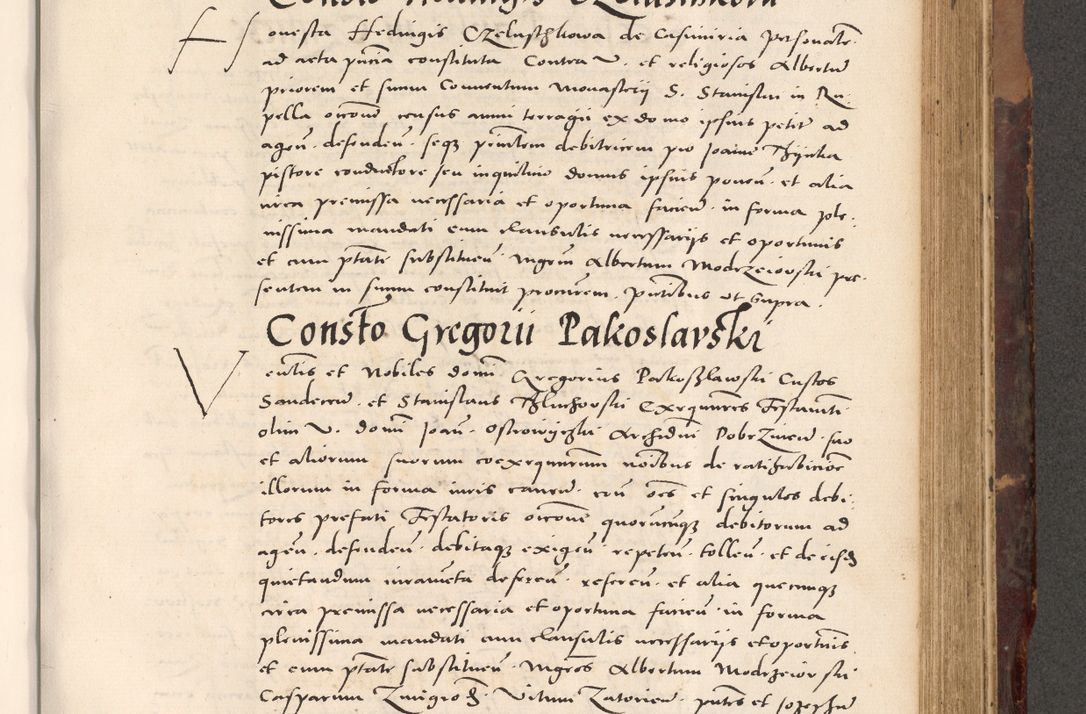 Honesta Hedvigis Czeluschkowa de Casimiria personalit
ad acta pñcia constituta Contra V. et religiosos Albertũ
priorem et sum̃m Conventum Monasterij S. Stanislai in Ru
pella occõne census annui terragii ex domo ipsius petit ad
agen̄. defenden̄. seqz prinlem debitricem pro Joanne
pistore conductore seu inquilino domus ipsius ponen̄. et alia
circa premissa necessaria et oportuna facien̄. in forma ple
nissima mandati cum clausulis necessarijs et oportunis
et cum ptãte substituen̄. Mgrm̄ Albertum Modrzeiovski pre
sentem in suum constituit procurem. p̃ntibus ut supra.
Consto Gregorii Pakoslavski
Venl̃is et Nobiles domī Gregorius Pakoszlawski Custos
Sandecen̄. et Stanislaus Exequutores Testamti
olim V. domī Joan̄. Archidni Dobrzinen̄. suo
et aliorum suorum coexequutorum noĩbus de ratihabitiõe
illorum in forma iuris caven̄. erũ oẽs et singulos debi
tores prefati Testatoris occõne quorumcunqz debitorum ad
agen̄. defenden̄. debitaqz exigen̄. repeten̄. tollen̄. et de eisd
quietandum iuramenta deferen̄. referen̄. et alia quecunqz
circa premissa necessaria et oportuna facien̄. in forma
plenissima mandati cum clausulis necessarijs et oportunis
et cum ptãte substituen̄. Mgrõs Albertum Modrzeiovski
Casparum Zmigrod. Vitum Zatorien̄. pñtes et Josephũ